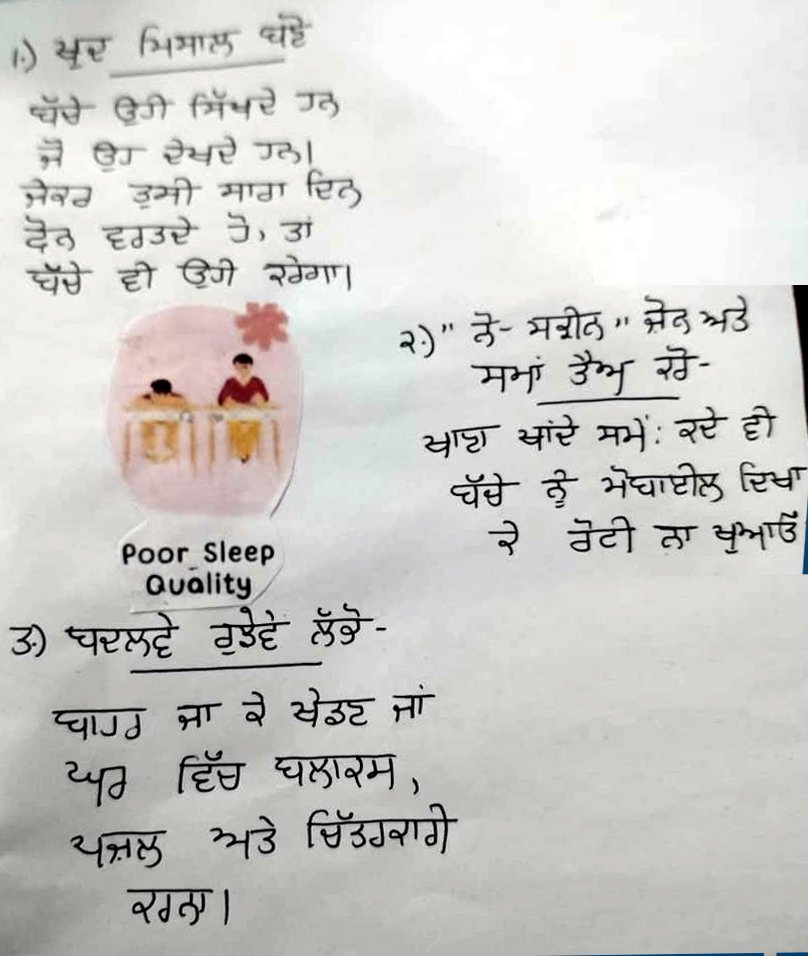 1.) ਖੁਦ ਮਿਸਾਲ ਬਣੋ
ਬੱਚੇ ਉਹੀ ਸਿੱਖਦੇ ਹਨ
ਜੋ ਉਹ ਦੇਖਦੇ ਹਨ।
ਜੇਕਰ ਤੁਸੀ ਸਾਰਾ ਦਿਨ
ਫੋਨ ਵਰਤਦੇ ਹੋ, ਤਾਂ
ਬੱਚੇ ਵੀ ਉਹੀ ਕਰੇਗਾ।
Poor Sleep
Quality
੨.) " ਨੋ- ਸਕ੍ਰੀਨ " ਜ਼ੋਨ ਅਤੇ
ਸਮਾਂ ਤੈਅ ਕਰੋ-
ਖਾਣਾ ਖਾਂਦੇ ਸਮੇਂ: ਕਦੇ ਵੀ
ਬੱਚੇ ਨੂੰ ਮੋਬਾਈਲ ਦਿਖਾ
ਕੇ ਰੋਟੀ ਨਾ ਖੁਆਓ
3.) ਬਦਲਵੇ ਰੁਝੇਵੇਂ ਲੱਭੋ-
ਬਾਹਰ ਜਾ ਕੇ ਖੇਡਣ ਜਾਂ
ਘਰ ਵਿੱਚ ਬਲਾਕਸ,
ਪਜ਼ਲ ਅਤੇ ਚਿੱਤਰਕਾਰੀ
ਕਰਨਾ।